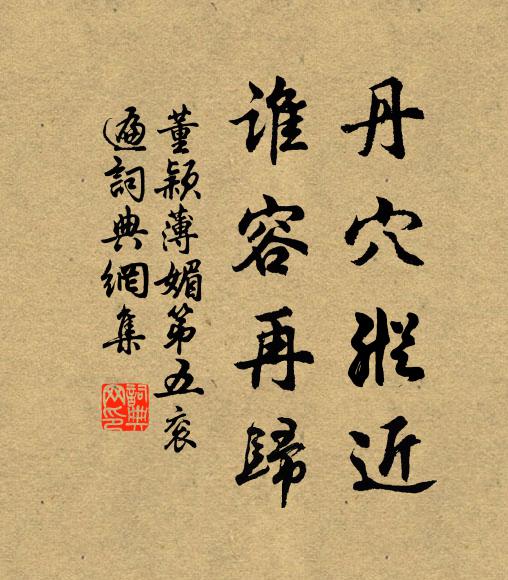 丹穴縱近
誰容再歸
董穎薄媚第五衮
遍詞典網集
詞典網印